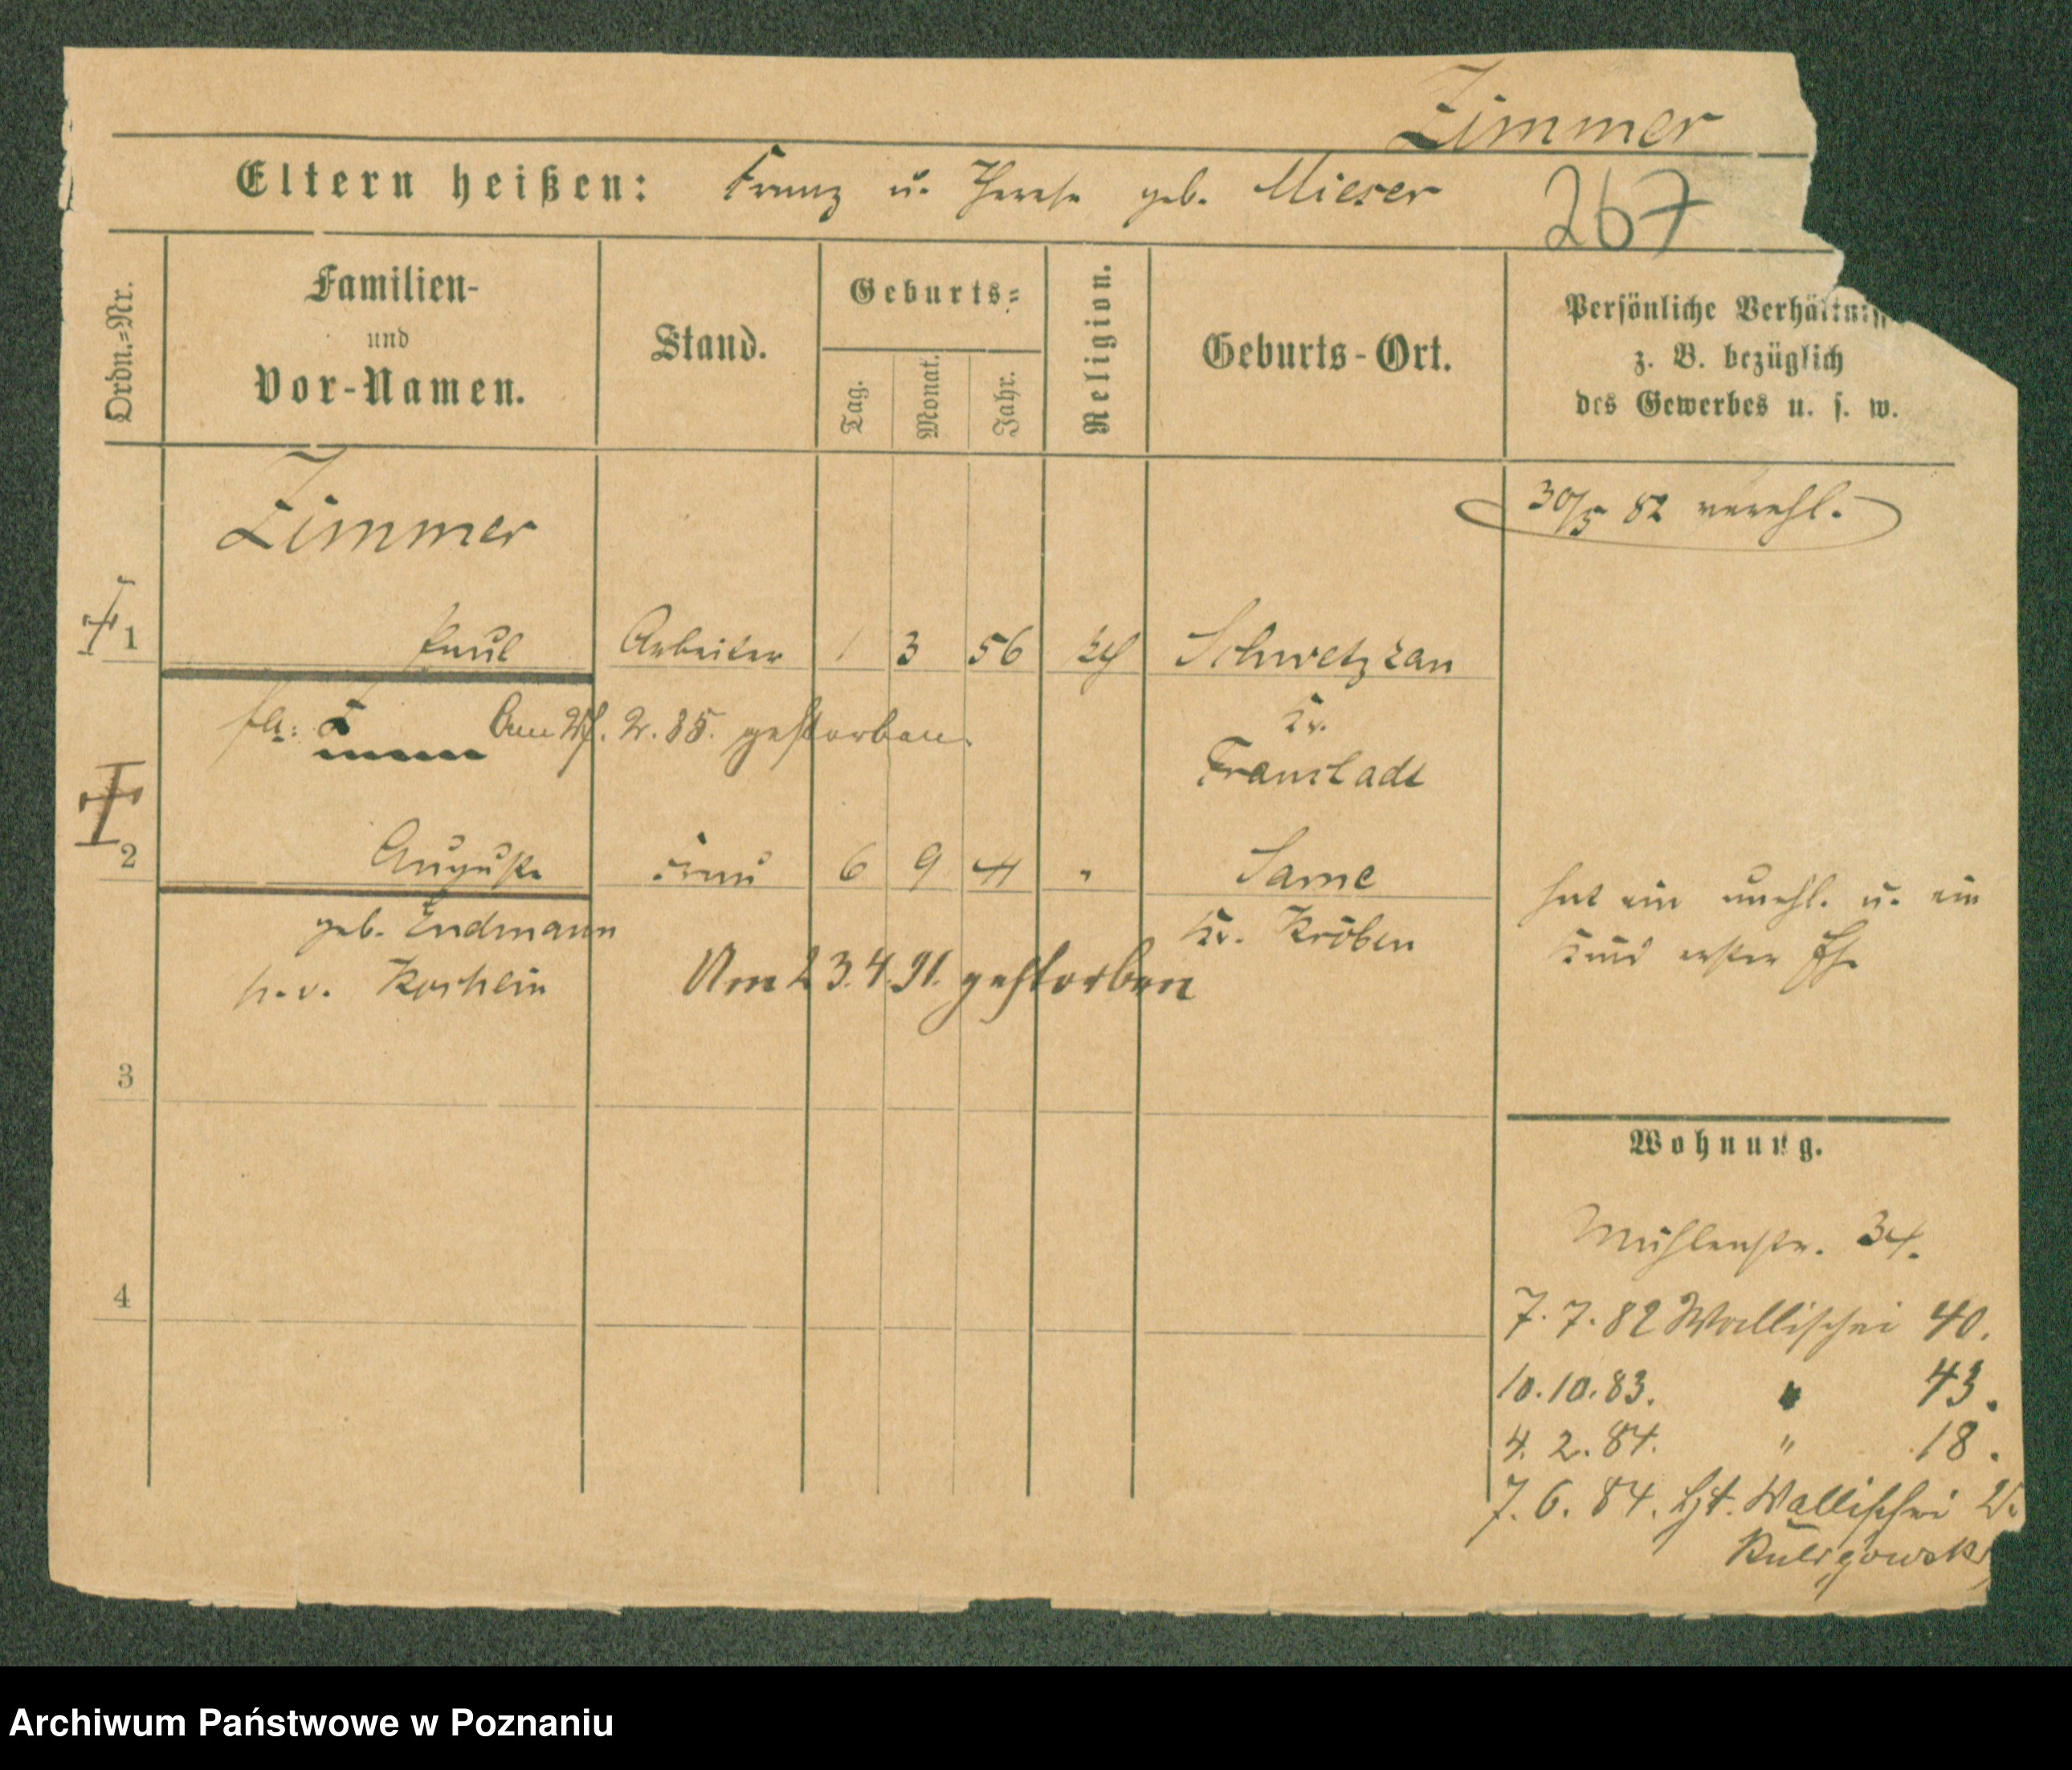 Zimmer
Eltern heißen: Franz u. Therese geb. Mieser
267
Ordn.=Nr.
Familien-
und
Vor-Namen.
Stand.
Geburts=
Tag.
Monat.
Jahr.
Religion.
Geburts-Ort.
Persönliche Verhältniss
z. B. bezüglich
des Gewerbes u. s. w.
Zimmer
30/5 82 verehl.
1 Paul Arbeiter 1 3 56 kth Schwetzkau
Am 27. 2. 85. gestorben.
Kr.
Fraustadt
2 Auguste Frau 6 9 " Sarne
geb. Endmann
Kr. Kröben
hat ein unehl. u. ein
Kind erster Ehe
Am 23.4.91. gestorben
3
Wohnung.
Mühlenstr. 34.
4
7. 7. 82 Wallischei 40.
10. 10. 83. " 43.
4. 2. 84. " 18.
7. 6. 84. Wallischei